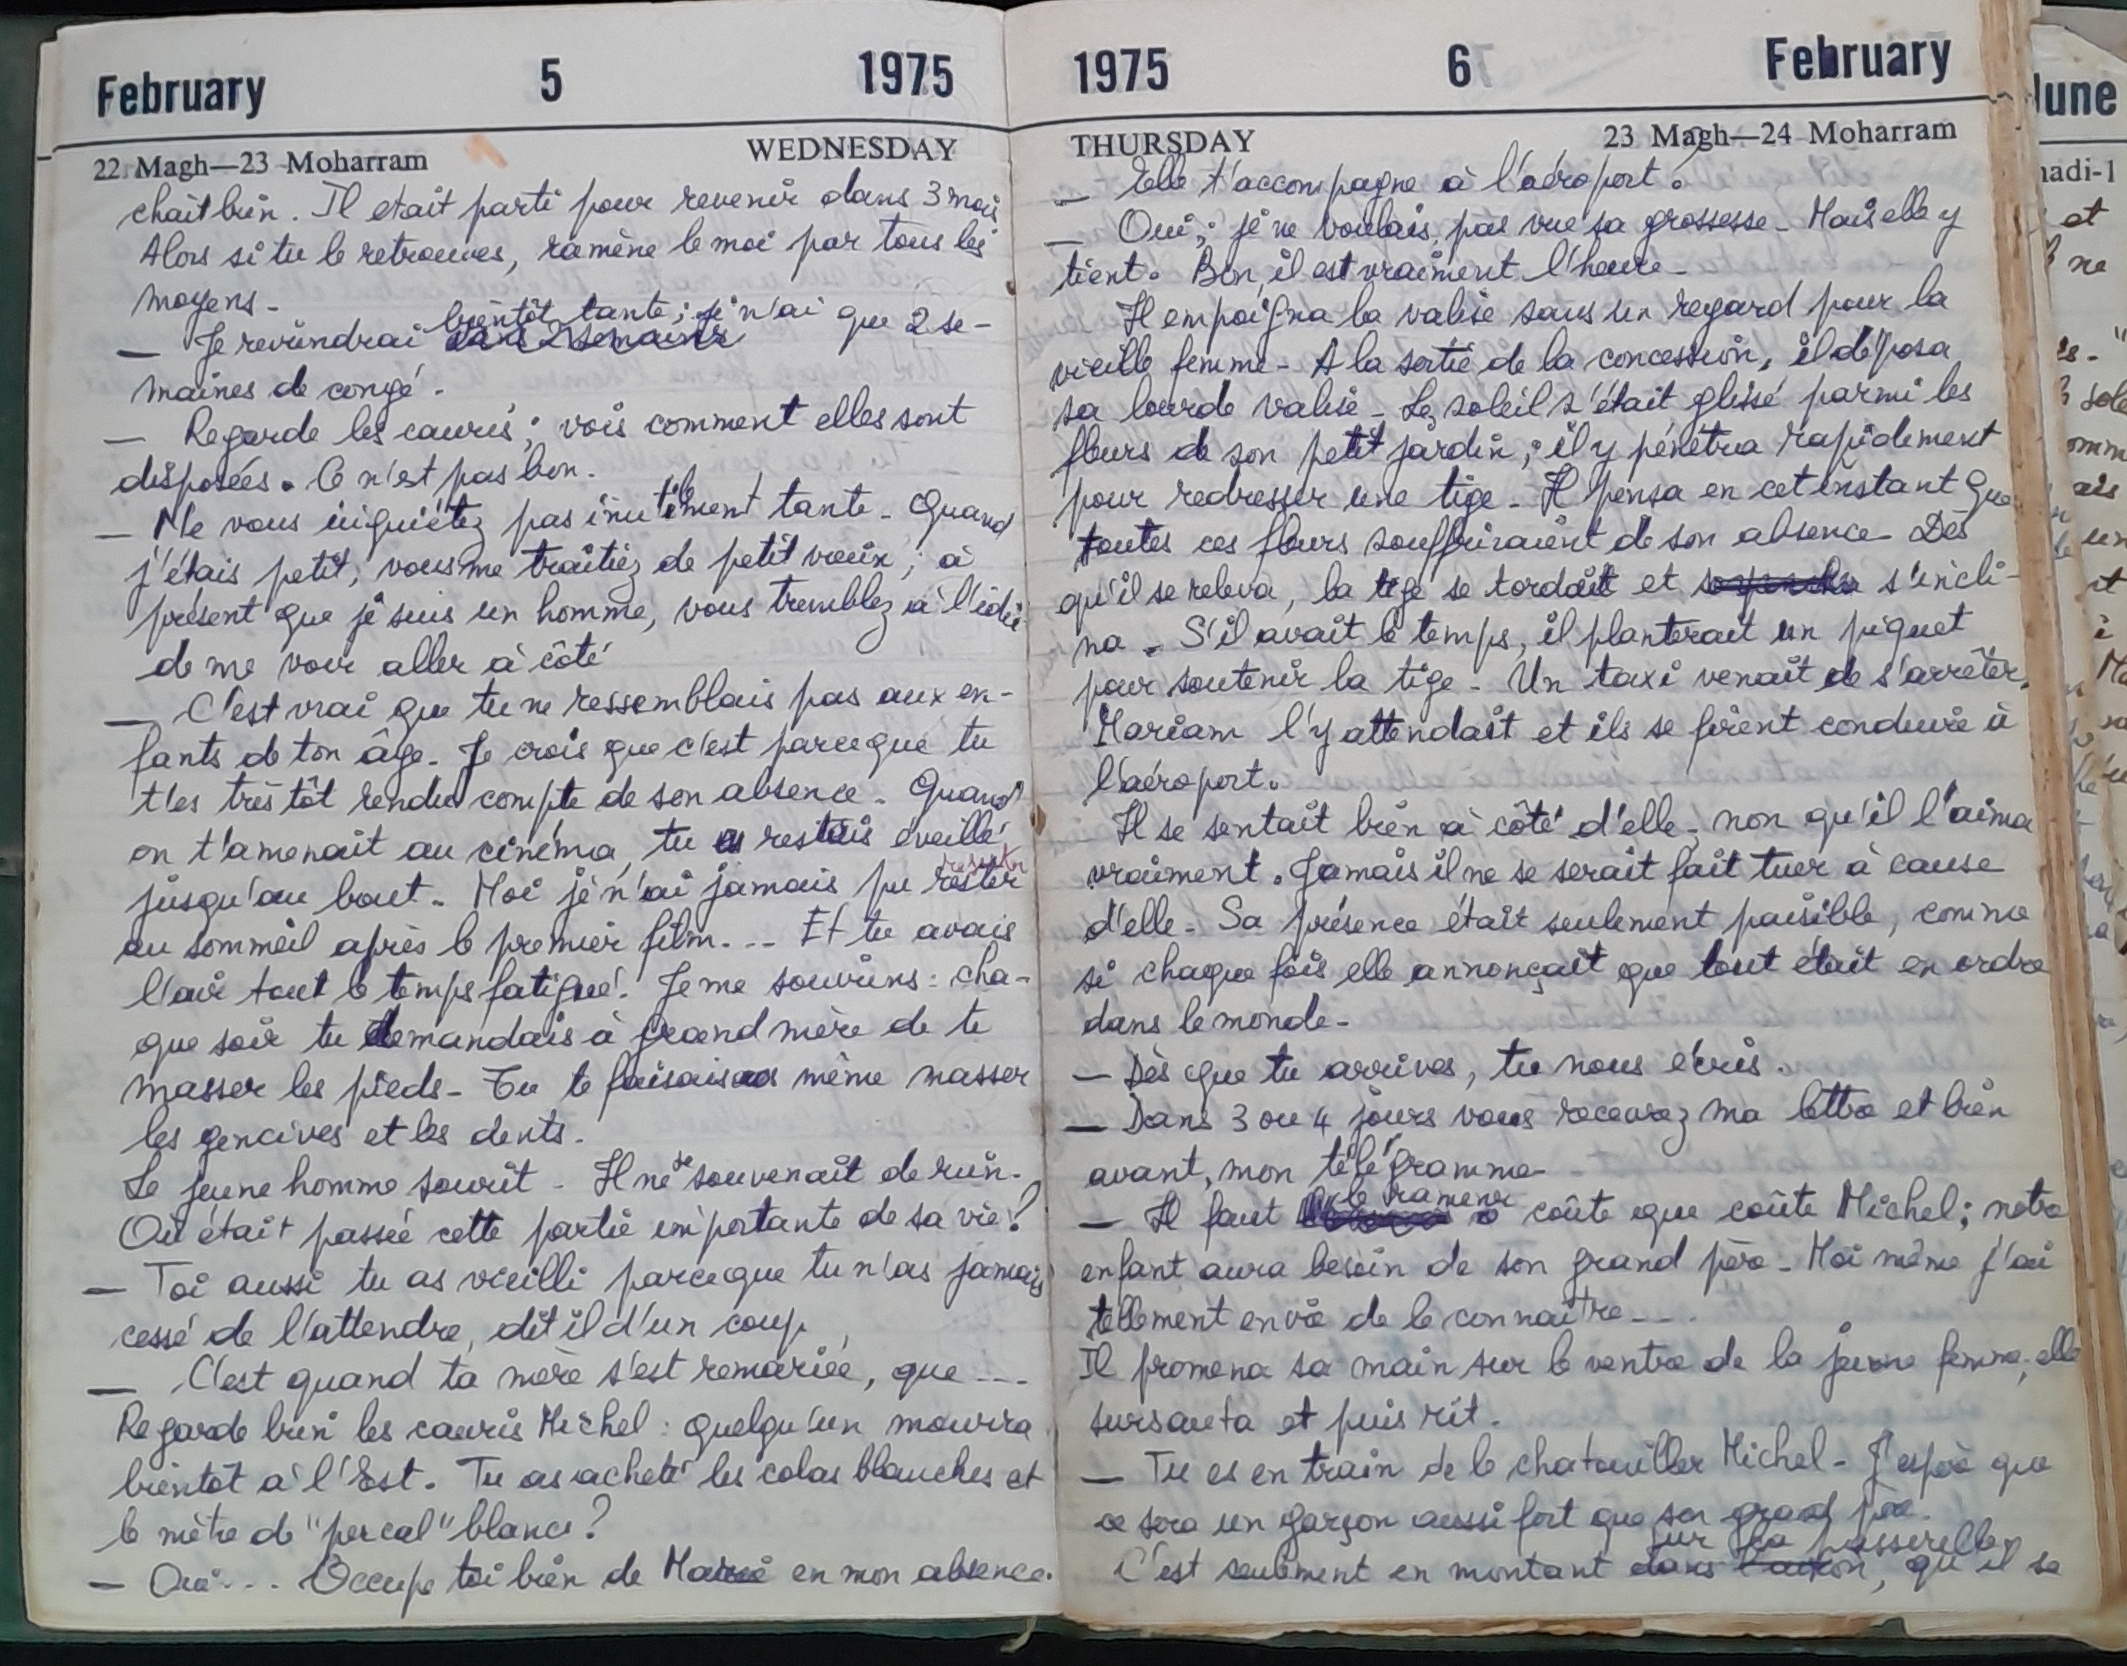 February 5 1975
22 Magh—23 Moharram WEDNESDAY
chait bien. Il etait parti pour revenir dans 3 mois
Alors si tu le retrouves, ramène le moi par tous les
moyens -
— Je reviendrai bientôt tante; je n'ai que 2 se-
maines de congé.
— Regarde les cauris; vois comment elles sont
disposées. Ce n'est pas bon.
— Ne vous inquiétez pas inutilement tante - Quand
j'étais petit, vous me traitiez de petit vieux; à
présent que je suis un homme, vous tremblez à l'idée
de me voir aller à côté
— C'est vrai que tu ne ressemblais pas aux en-
fants de ton âge. Je crois que c'est parceque tu
t'es très tôt rendu compte de son absence - Quand
on t'amenait au cinéma, tu restais éveillé
jusqu'au bout - Moi je n'ai jamais pu rester
au sommeil après le premier film... Et tu avais
l'air tout le temps fatigué. Je me souviens : cha-
que soir tu demandais à grand mère de te
masser les pieds - Tu te faisais même masser
les gencives et les dents.
Le jeune homme sourit - Il ne se souvenait de rien.
Où était passée cette partie importante de sa vie?
— Toi aussi tu as vieilli parceque tu n'as jamais
cessé de l'attendre, dit il d'un coup,
— C'est quand ta mère s'est remariée, que ---
Regarde bien les cauris Michel : quelqu'un mourra
bientôt à l'Est. Tu as acheté les colas blanches et
le mètre de "percal" blanc?
— Oui... Occupe toi bien de en mon absence.
1975 6 February
THURSDAY 23 Magh—24 Moharram
— Elle t'accompagne à l'aéroport?
— Oui; je ne voulais pas vue sa grossesse - Mais elle y
tient. Bon, il est vraiment l'heure -
Il empoigna la valise sans un regard pour la
vieille femme - A la sortie de la concession, il déposa
sa lourde valise - Le soleil s'était glissé parmi les
fleurs de son petit jardin; il y pénétra rapidement
pour redresser une tige - Il pensa en cet instant que
toutes ces fleurs souffriraient de son absence - Dès
qu'il se releva, la tige se tordait et s'incli-
na. S'il avait le temps, il planterait un piquet
pour soutenir la tige - Un taxi venait de s'arrêter.
Mariam l'y attendait et ils se firent conduire à
l'aéroport.
Il se sentait bien à côté d'elle, non qu'il l'aima
vraiment. Jamais il ne se serait fait tuer à cause
d'elle - Sa présence était seulement paisible, comme
si chaque fois elle annonçait que tout était en ordre
dans le monde -
— Dès que tu arrives, tu nous écris.
— Dans 3 ou 4 jours vous recevrez ma lettre et bien
avant, mon télégramme -
— Il faut le ramener coûte que coûte Michel; notre
enfant aura besoin de son grand père - Moi même j'ai
tellement envie de le connaître ---
Il promena sa main sur le ventre de la jeune femme; elle
sursauta et puis rit.
— Tu es en train de le chatouiller Michel - J'espère que
ce sera un garçon aussi fort que son grand père.
C'est seulement en montant sur la passerelle, qu'il se
June